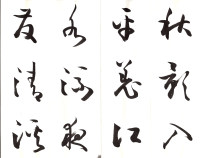 秋影入
平羌江
水流夜
發清溪